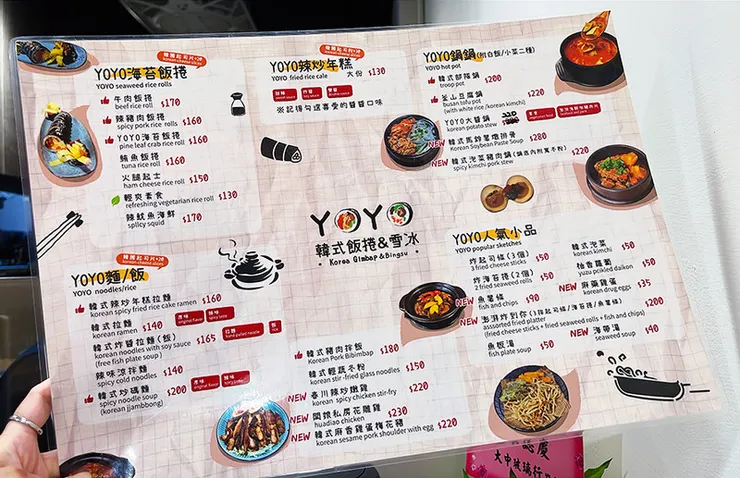 韓國起司片+冰
korean cheese slices
YOYO海苔飯捲
YOYO seaweed rice rolls
牛肉飯捲 $170
beef rice roll
辣豬肉飯捲 $160
spicy pork rice rolls
YOYO海苔飯捲 $160
pine leaf crab rice roll
鮪魚飯捲 $160
tuna rice roll
火腿起士 $150
ham cheese rice roll
輕爽素食 $130
refreshing vegetarian rice roll
辣魷魚海鮮 $170
splicy squid
YOYO辣炒年糕
YOYO fried rice cale
大份 $130
※記得勾選喜愛的醬醬口味
YOYO鍋鍋(附白飯/小菜二種)
YOYO hot pot
韓式部隊鍋 $200
troop pot
釜山豆腐鍋 $220
busan tofu pot
(with white rice (korean kimchi)
YOYO大醬鍋
korean potato stew
NEW 韓式馬鈴薯燉排骨 $280
Korean Soybean Paste Soup
NEW 韓式泡菜豬肉鍋 (鍋底內附寬冬粉) $220
spicy kimchi pork stew
YOYO
韓式飯捲&雪冰
Korea Gimbap & Bingsu
YOYO麵/飯
YOYO noodles/rice
韓式辣炒年糕拉麵 $160
korean spicy fried rice cake ramen
韓式拉麵 $140
korean ramen
原味
original flavor
辣味
spicy taste
韓式炸醬拉麵(飯) $165
korean noodles with soy sauce
(free fish plate soup )
拉麵
hand pulled noodle
飯
rice
辣味涼拌麵 $140
spicy cold noodles
韓式炒瑪麵 $200
spicy noodle soup
(korean jjambbong)
原味
original flavor
辣味
spicy taste
韓式豬肉拌飯 $180
Korean Pork Bibimbap
韓式輕蔬冬粉 $150
korean stir-fried glass noodles
NEW 春川辣炒嫩雞 $220
korean spicy chicken stir-fry
NEW 闆娘私房花雕雞 $230
huadiao chicken
NEW 韓式麻香雞蛋梅花豬 $220
korean sesame pork shoulder with egg
YOYO人氣小品
YOYO popular sketches
炸起司條(3個) $50
3 fried cheese sticks
炸海苔捲(2個) $50
2 fried seaweed rolls
NEW 魚薯條 $90
fish and chips
NEW 澎湃炸到你(3種起司條/海苔捲/魚薯條) $200
asssorted fried platter
(fried cheese sticks + fried seaweed rolls + fish and chips)
魚板湯 $50
fish plate soup
韓式泡菜 $50
korean kimchi
柚香蘿蔔 $50
yuzu pcikled daikon
NEW 麻藥雞蛋 $35
korean drug eggs
NEW 海帶湯 $40
seaweed soup
大中玻璃行